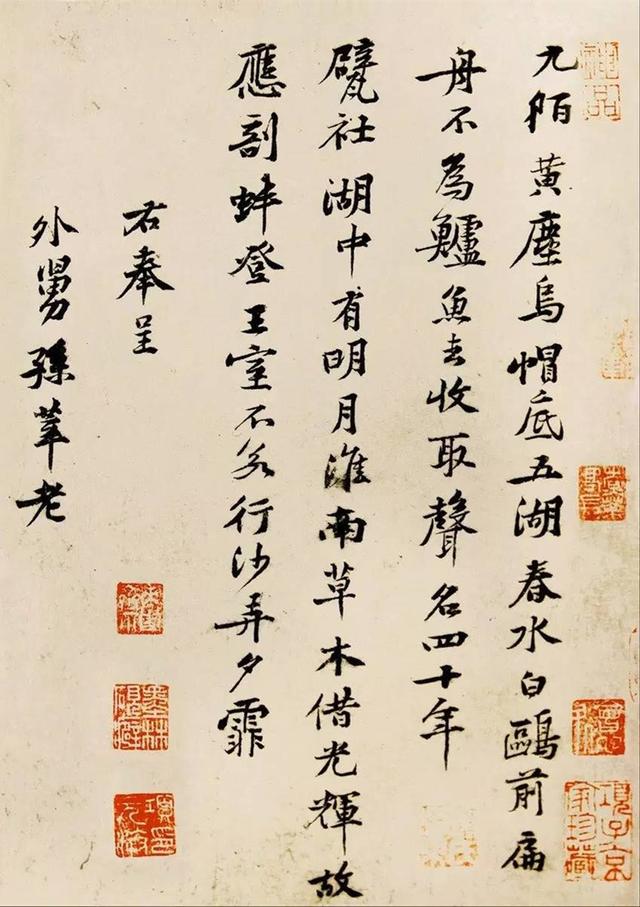 神品
項子京家珍藏
九陌黃塵烏帽底五湖春水白鷗前扁
舟不為鱸魚去收取聲名四十年
甓社湖中有明月淮南草木借光輝故
應剖蚌登王室不若行沙弄夕霏
右奉呈
外舅孫莘老